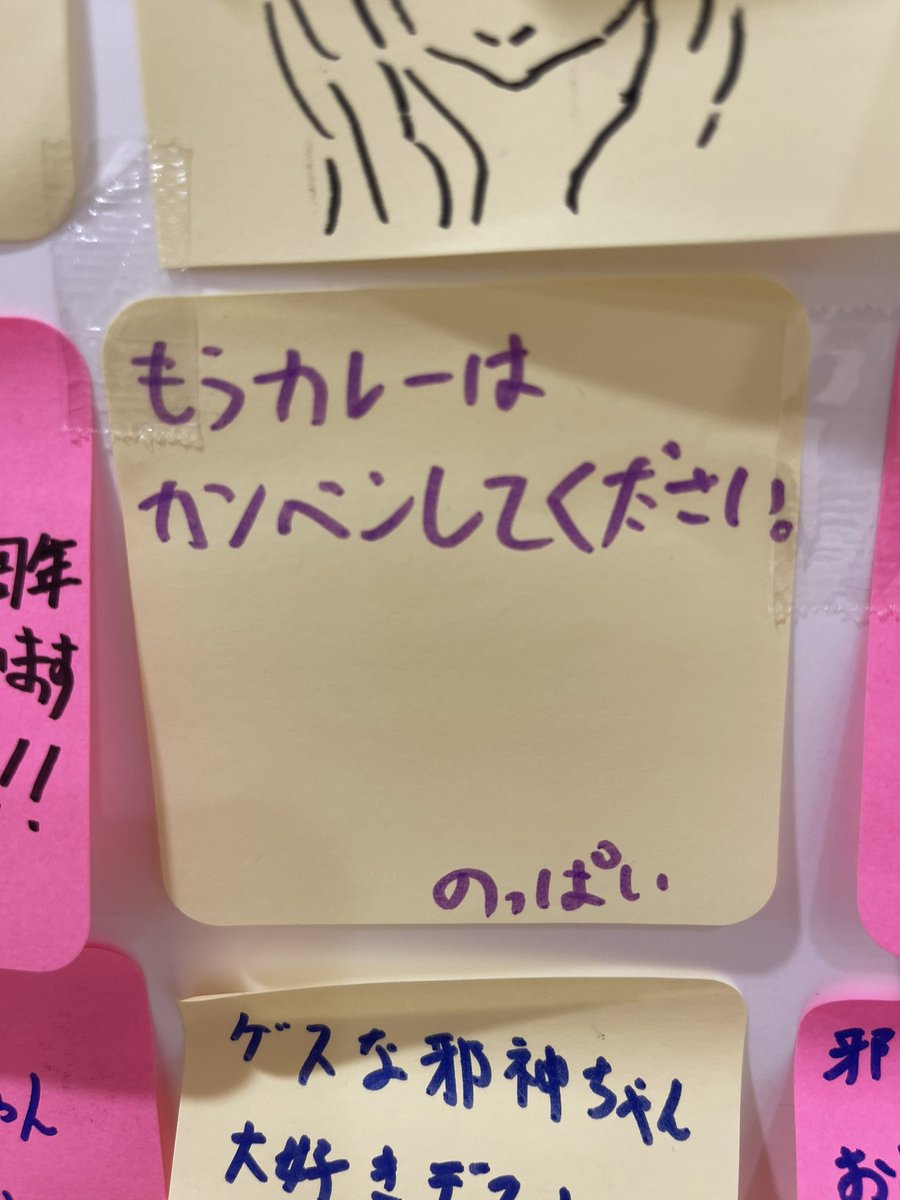 もうカレーは
カンベンしてください。
のっぱい
周年
ます
!!
ゲスな邪神ちゃん
大好きデス
ゃん
邪
お